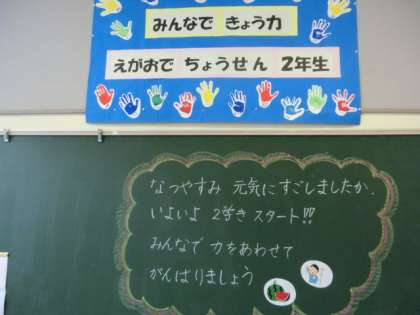 みんなで きょう力
えがおで ちょうせん 2年生
なつやすみ 元気にすごしましたか。
いよいよ 2学き スタート!!
みんなで 力をあわせて
がんばりましょう